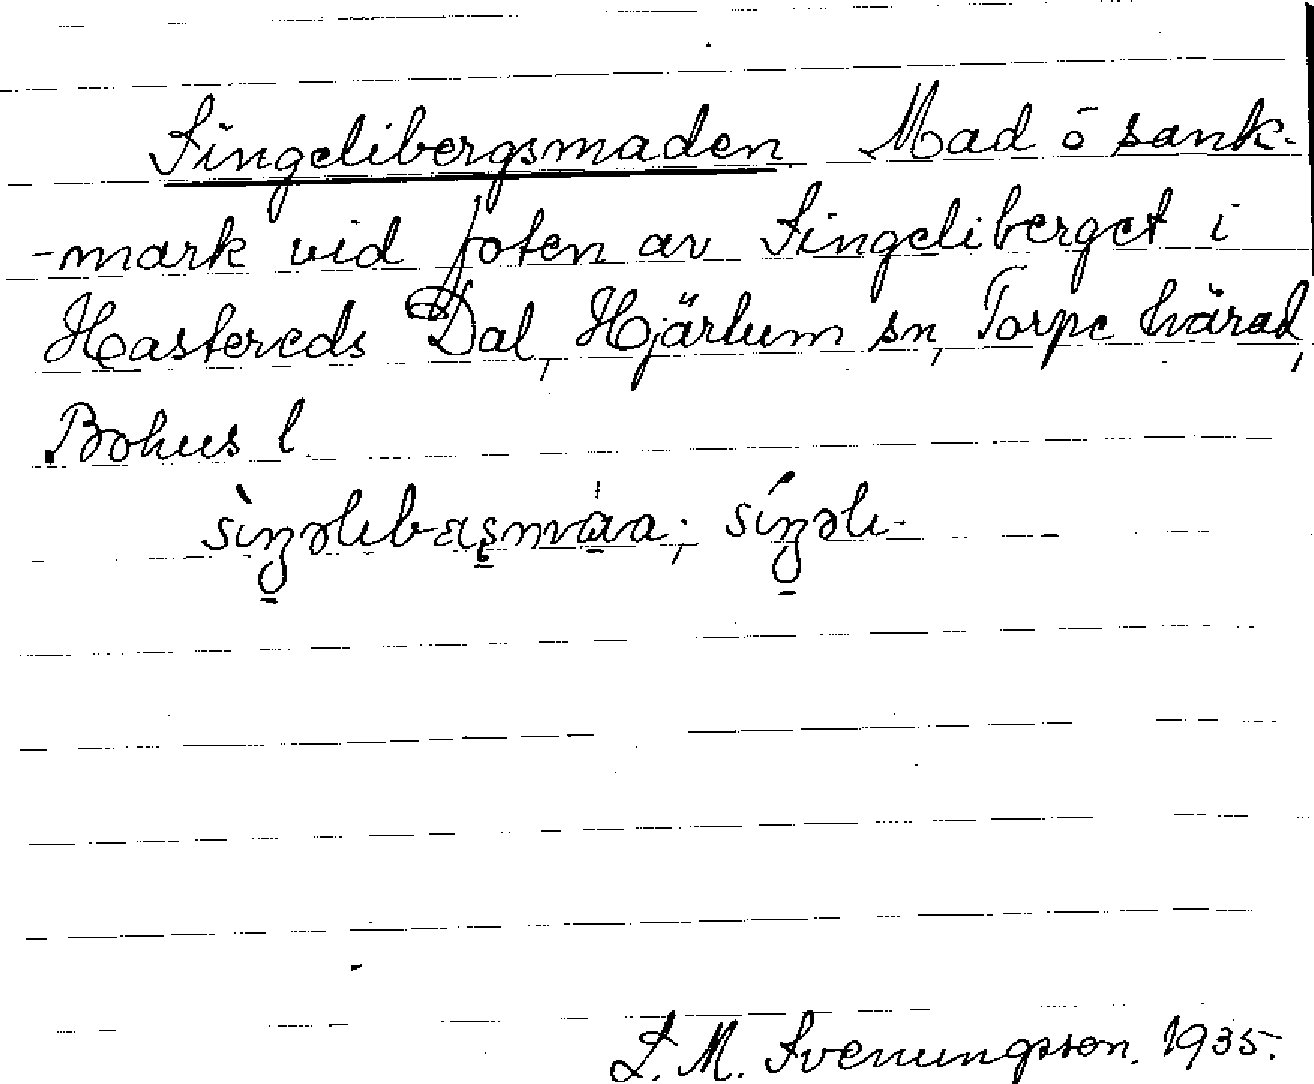 Singelibergsmaden Mad ō sank-
-mark vid foten av Singeliberget i
Hastereds Dal, Hjärtum sn, Torpe härad,
Bohus l
S. M. Svenungsson. 1935.